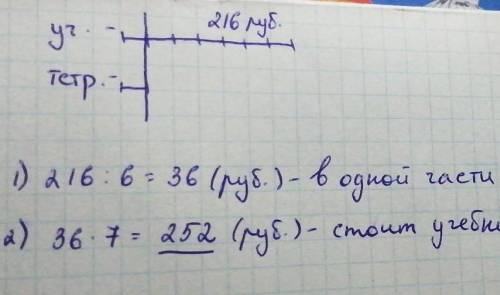 216 руб.
уч. -
тетр. -
1) 216 : 6 = 36 (руб.) - в одной части
2) 36 · 7 = 252 (руб.) - стоит учебн